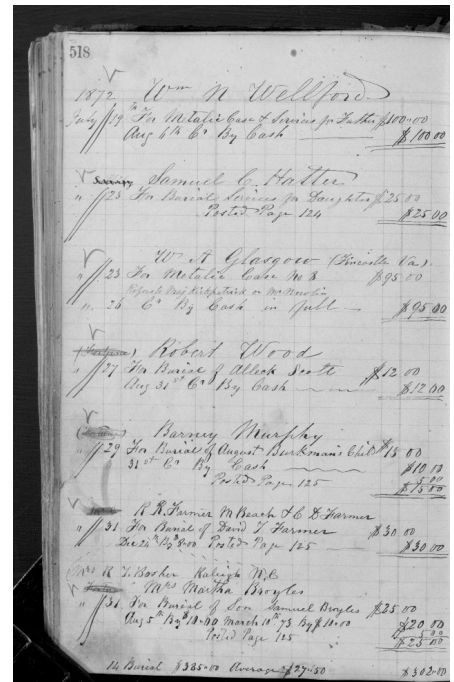 518
1872 Wm N Wellford
July 19th For Metalic Case & Services for Father $100.00
Aug 6th Cr By Cash $100.00
Samuel C. Hatter
" 23 For Burial Services for Daughter $25 00
Posted Page 124 $25.00
W A Glasgow (Fincastle Va.)
" 23 For Metalic Case No 8 $95 00
Kirkpatrick or Mr
" 26 Cr By Cash in full $95 00
Robert Wood
" 27 For Burial of Alleck Scott $12 00
Aug 31st Cr By Cash $12.00
Barney Murphy
" 29 For Burial of August Burkman's Child $15 00
31st Cr By Cash $10 00
Posted Page 125 5.00
$15 00
R R. Farmer M Beach & C D Farmer
" 31 For Burial of David T Farmer $30 00
Dec 24th Posted Page 125 $30.00
Mrs R T. Bosher Raleigh N.C
Mrs Martha Broyles
" 31 For Burial of Son Samuel Broyles $25 00
Aug 5th By $10.00 March 10th 73 By $10.00 $20 00
Posted Page 125 5 00
$25 00
14 Burial $385.00 Average $27.50 $302.00